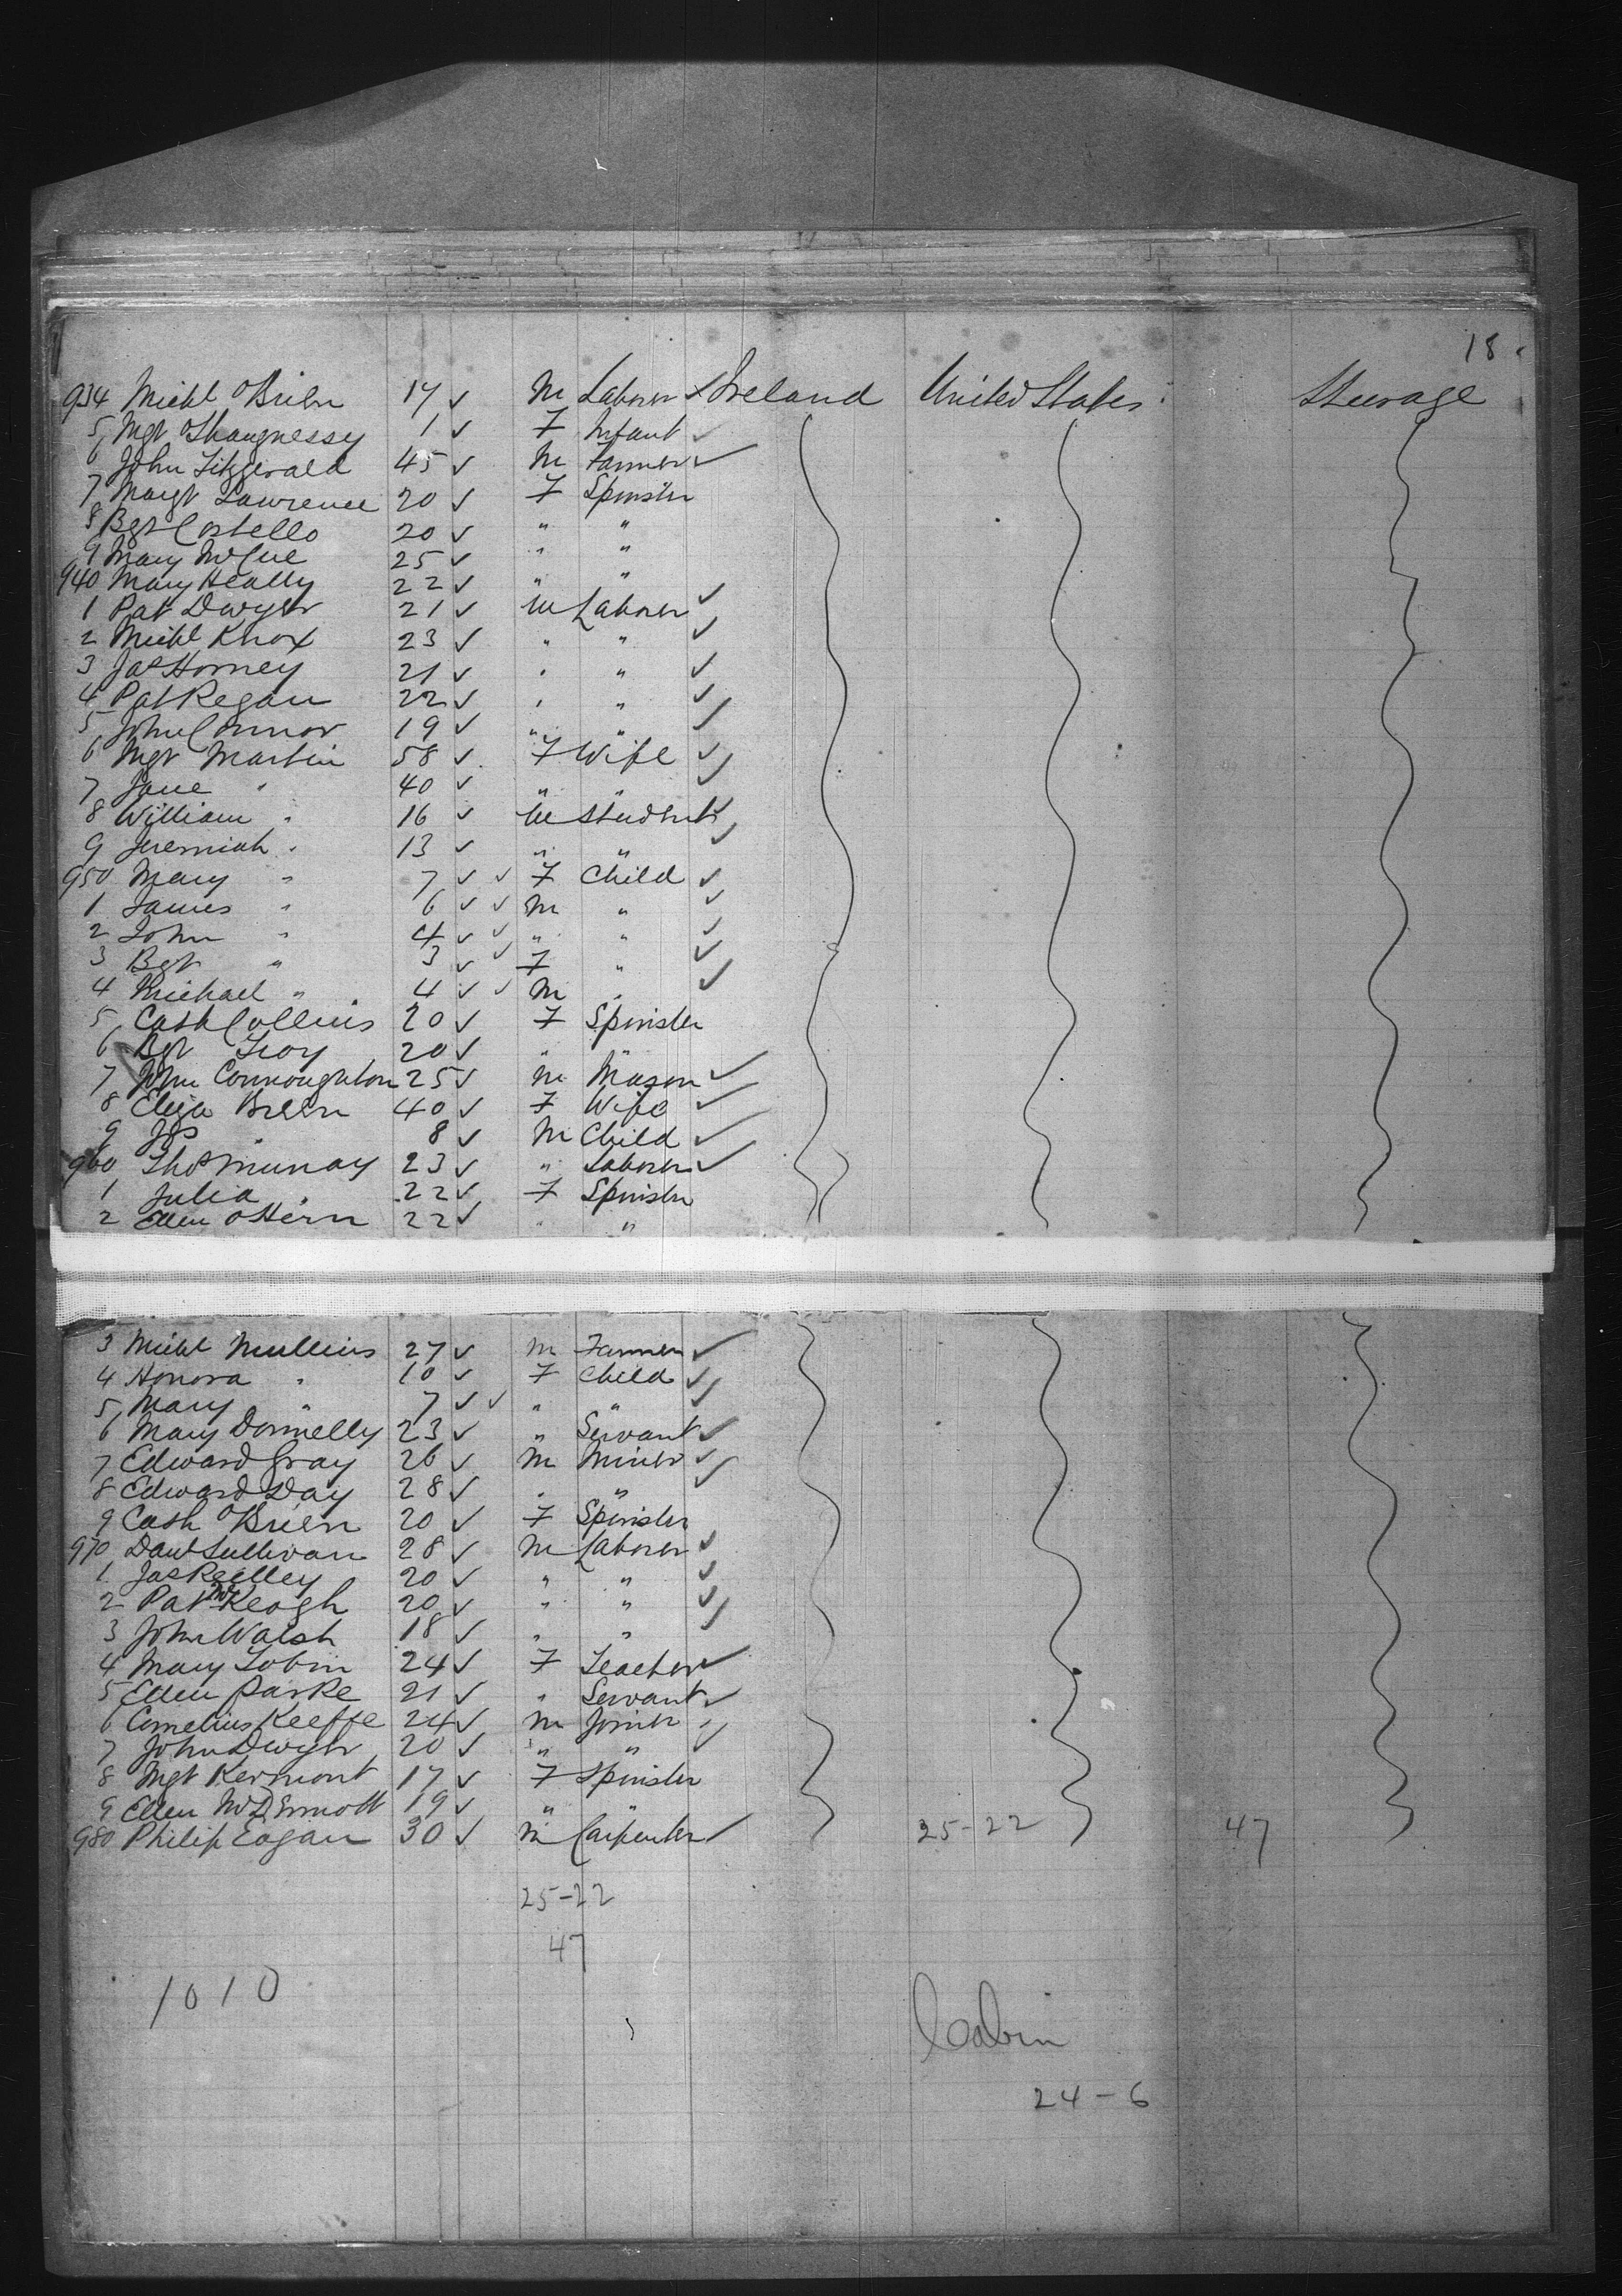 18
934 Michl O'Brien 17 M Laborer Ireland United States Steerage
5 Mgt O'Shaugnessy 1 F Infant
6 John Fitzgerald 45 M Farmer
7 Margt Lawrence 20 F Spinster
8 Bgt Costello 20 " "
9 Mary McCue 25 " "
940 Mary Heally 22 " "
1 Pat Dwyer 21 M Laborer
2 Michl Knox 23 " "
3 Jas Horney 21 " "
4 Pat Regan 22 " "
5 John Connor 19 " "
6 Mgt Martin 58 F Wife
7 Jane " 40 " "
8 William " 16 M Student
9 Jeremiah " 13 " "
950 Mary " 7 F Child
1 James " 6 M "
2 John " 4 " "
3 Bgt " 3 F "
4 Michael " 4 M "
5 Cath Collins 20 F Spinster
6 Bgt Troy 20 " "
7 John Connoughton 25 M Mason
8 Eliza Breen 40 F Wife
9 Jas " 8 M Child
960 Thos Murray 23 " Laborer
1 Julia " 22 F Spinster
2 Ellen O'Hern 22 " "
3 Michl Mullins 27 M Farmer
4 Honora " 10 F Child
5 Mary " 7 " "
6 Mary Donnelly 23 " Servant
7 Edward Gray 26 M Miner
8 Edward Day 28 " "
9 Cath O'Brien 20 F Spinster
970 Danl Sullivan 28 M Laborer
1 Jas Reilley 20 " "
2 Pat McKeogh 20 " "
3 John Walsh 18 " "
4 Mary Tobin 24 F Teacher
5 Ellen Parke 21 " Servant
6 Cornelius Keeffe 24 M Joiner
7 John Dwyer 20 " "
8 Mgt Kermont 17 F Spinster
9 Ellen McDermott 19 " "
980 Philip Eagan 30 M Carpenter 25-22 47
25-22
47
1010
Cabin
24-6